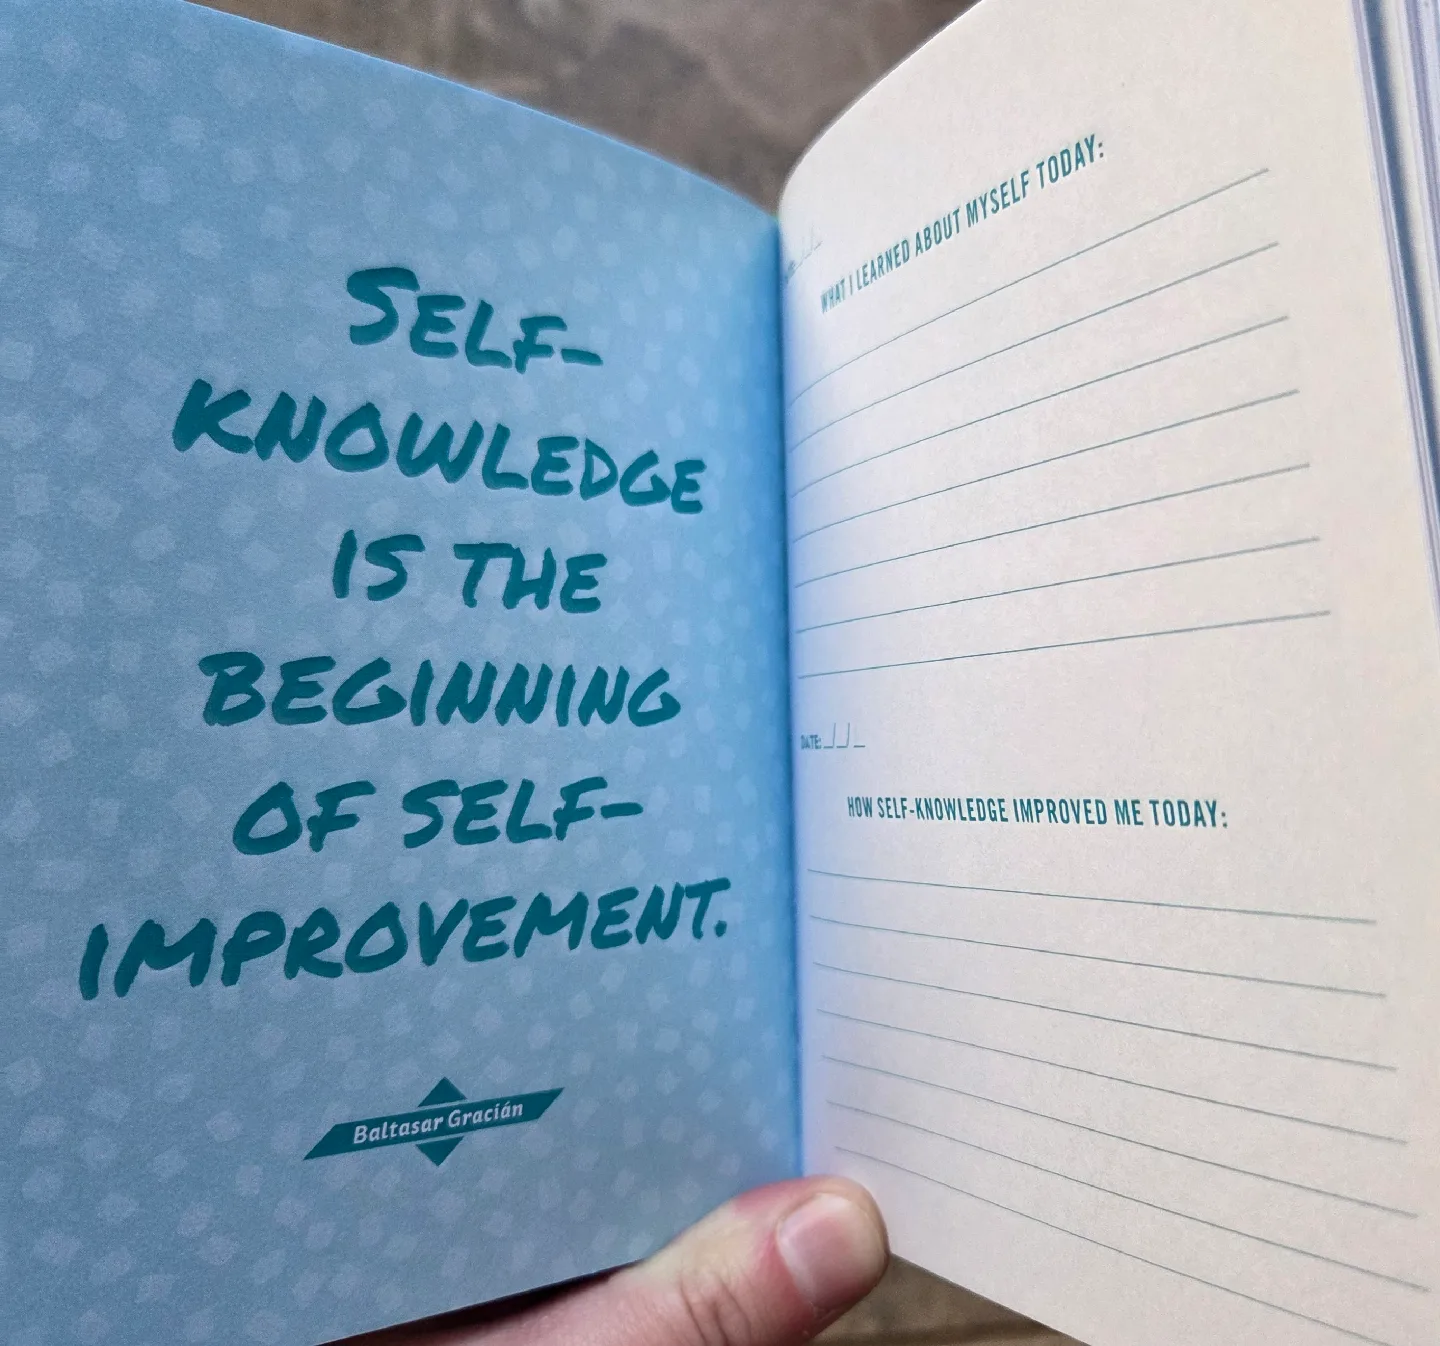 SELF-
KNOWLEDGE
IS THE
BEGINNING
OF SELF-
IMPROVEMENT.
Baltasar Gracián
WHAT I LEARNED ABOUT MYSELF TODAY:
DATE: _/_/_
HOW SELF-KNOWLEDGE IMPROVED ME TODAY: